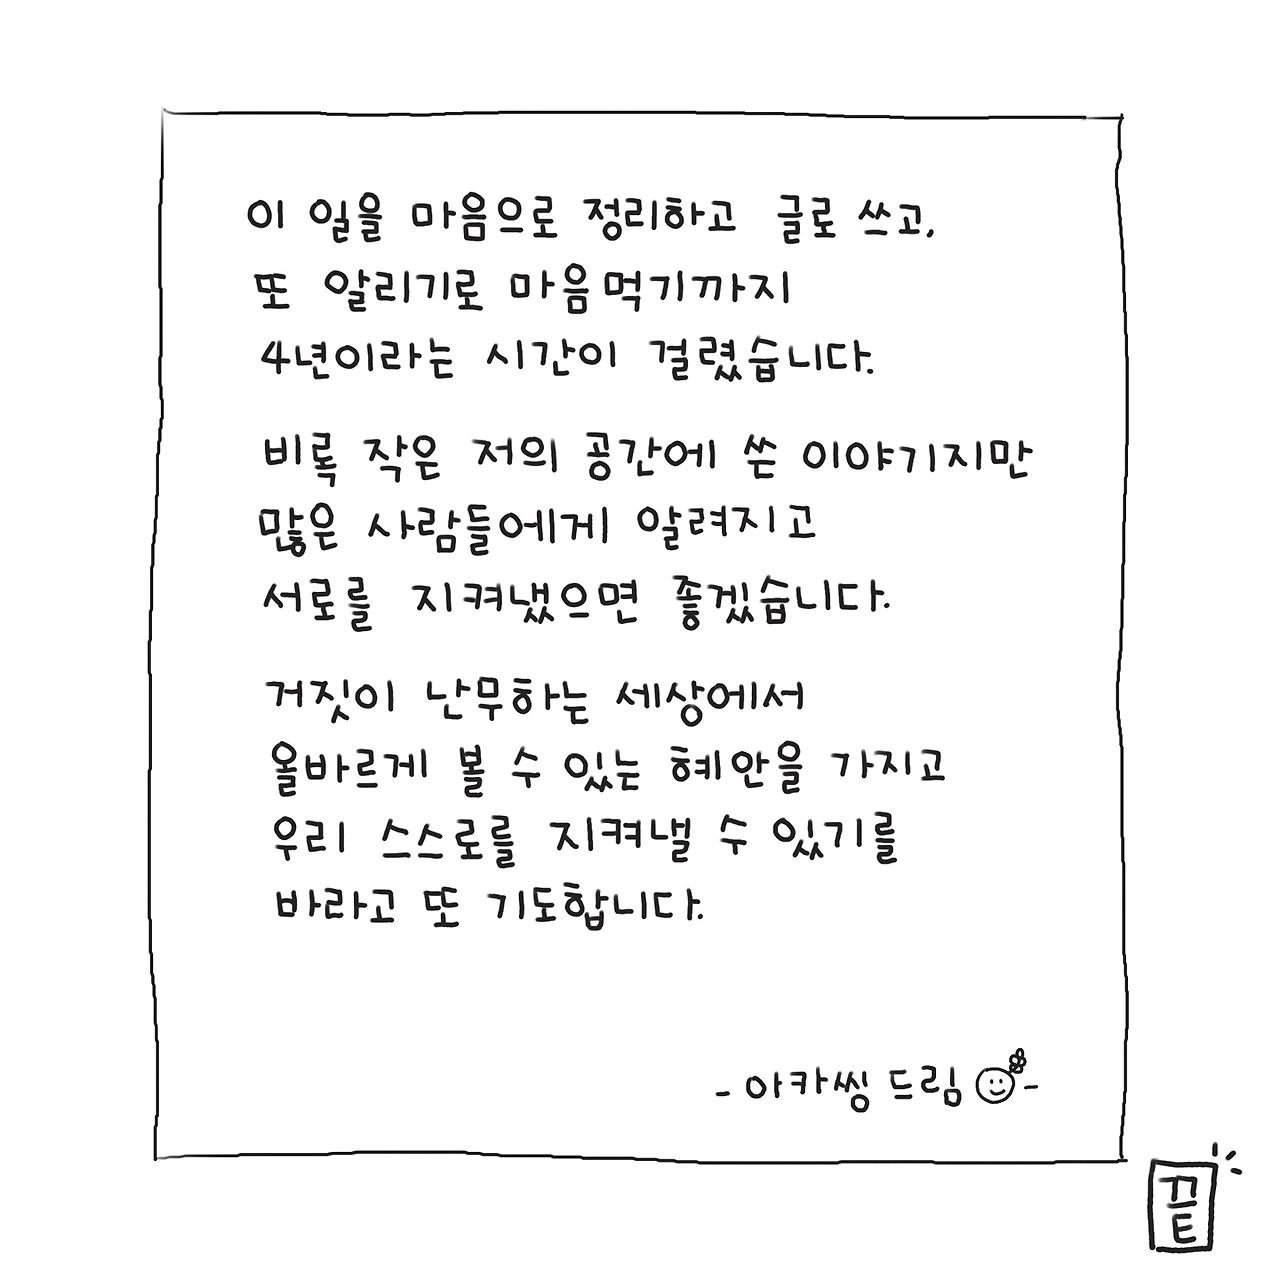 이 일을 마음으로 정리하고 글로 쓰고,
또 알리기로 마음먹기까지
4년이라는 시간이 걸렸습니다.
비록 작은 저의 공간에 쓴 이야기지만
많은 사람들에게 알려지고
서로를 지켜냈으면 좋겠습니다.
거짓이 난무하는 세상에서
올바르게 볼 수 있는 혜안을 가지고
우리 스스로를 지켜낼 수 있기를
바라고 또 기도합니다.
- 아카씽 드림 -
끝